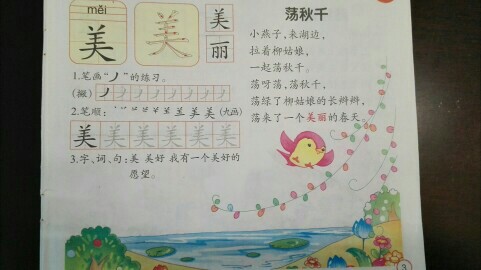 měi
美
美
美
丽
1.笔画“丿”的练习。
(撇)丿
2.笔顺：丶 丷 䒑 羊 美 美 (九画)
美 美 美 美 美 美
3.字、词、句：美 美好 我有一个美好的
愿望。
荡秋千
小燕子，来湖边，
拉着柳姑娘，
一起荡秋千。
荡呀荡，荡秋千，
荡绿了柳姑娘的长辫辫，
荡来了一个美丽的春天。
3